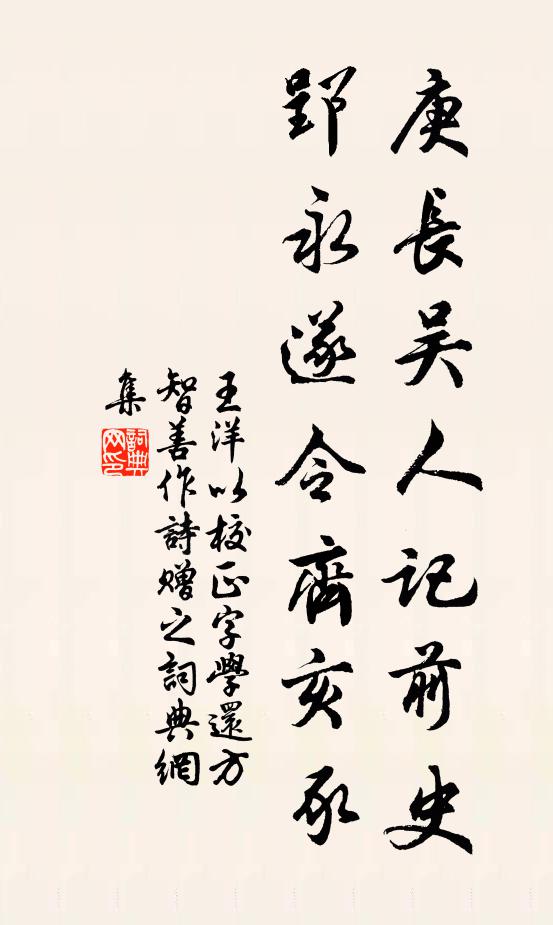 庚長吴人記前史
郢永遂令齊亥豕
王洋以校正字學還方
智善作詩贈之詞典網
集
詞典
网印